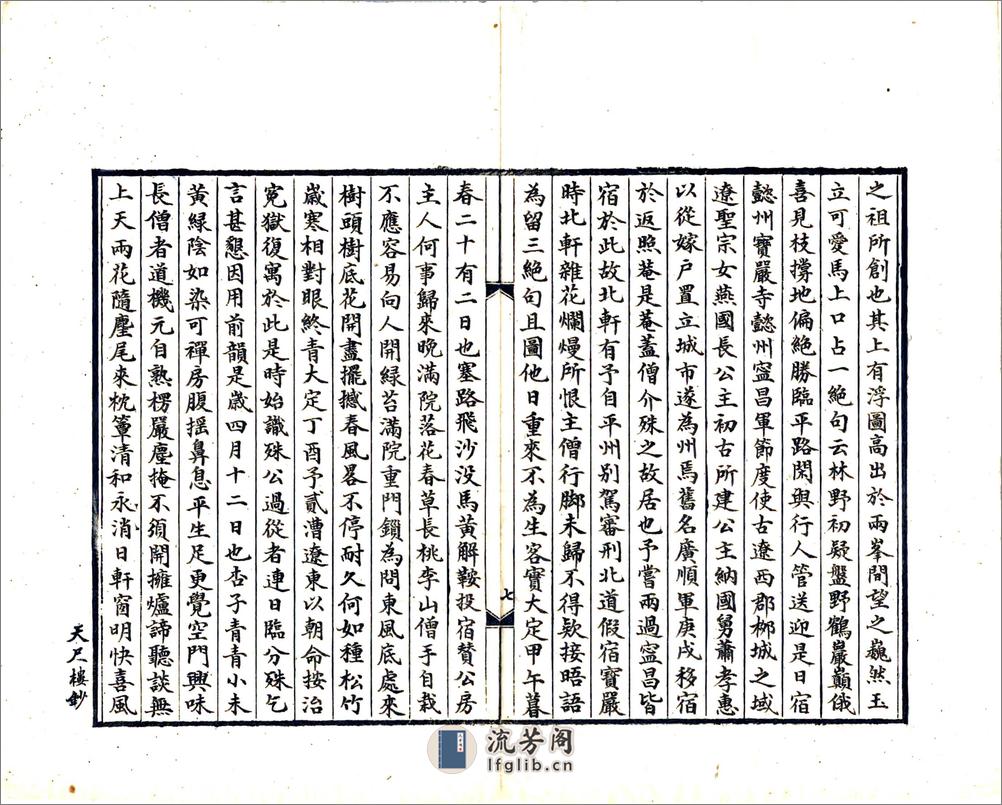 之祖所創也其上有浮圖高出於兩峯間望之巍然玉
立可愛馬上口占一絕句云林野初疑盤野鶴巖巔俄
喜見枝撐地偏絕勝臨平路閑與行人管送迎是日宿
懿州寶嚴寺懿州寍昌軍節度使古遼西郡栁城之域
遼聖宗女燕國長公主初古所建公主納國舅蕭孝惠
以從嫁戶置立城市遂為州焉舊名廣順軍庚戌移宿
於返照菴是菴蓋僧介殊之故居也予嘗兩過寍昌皆
宿於此故北軒有予自平州別駕審刑北道假宿寶嚴
時北軒雜花爛熳所恨主僧行脚未歸不得欵接晤語
為留三絕句且圖他日重來不為生客實大定甲午暮
春二十有二日也塞路飛沙没馬黃解鞍投宿贊公房
主人何事歸來晚滿院落花春草長桃李山僧手自栽
不應容易向人開緑苔滿院重門鎖為問東風底處來
樹頭樹底花開盡擺撼春風畧不停耐久何如種松竹
歲寒相對眼終青大定丁酉予貳漕遼東以朝命按治
寃獄復寓於此是時始識殊公過從者連日臨分殊乞
言甚懇因用前韻是歲四月十二日也杏子青青小未
黃緑陰如染可禪房腹揺鼻息平生足更覺空門興味
長僧者道機元自熟楞嚴塵掩不須開擁爐諦聽談無
上天雨花隨麈尾來枕簟清和永消日軒窗明快喜風
七
天尺樓鈔
流芳阁
lfglib.cn